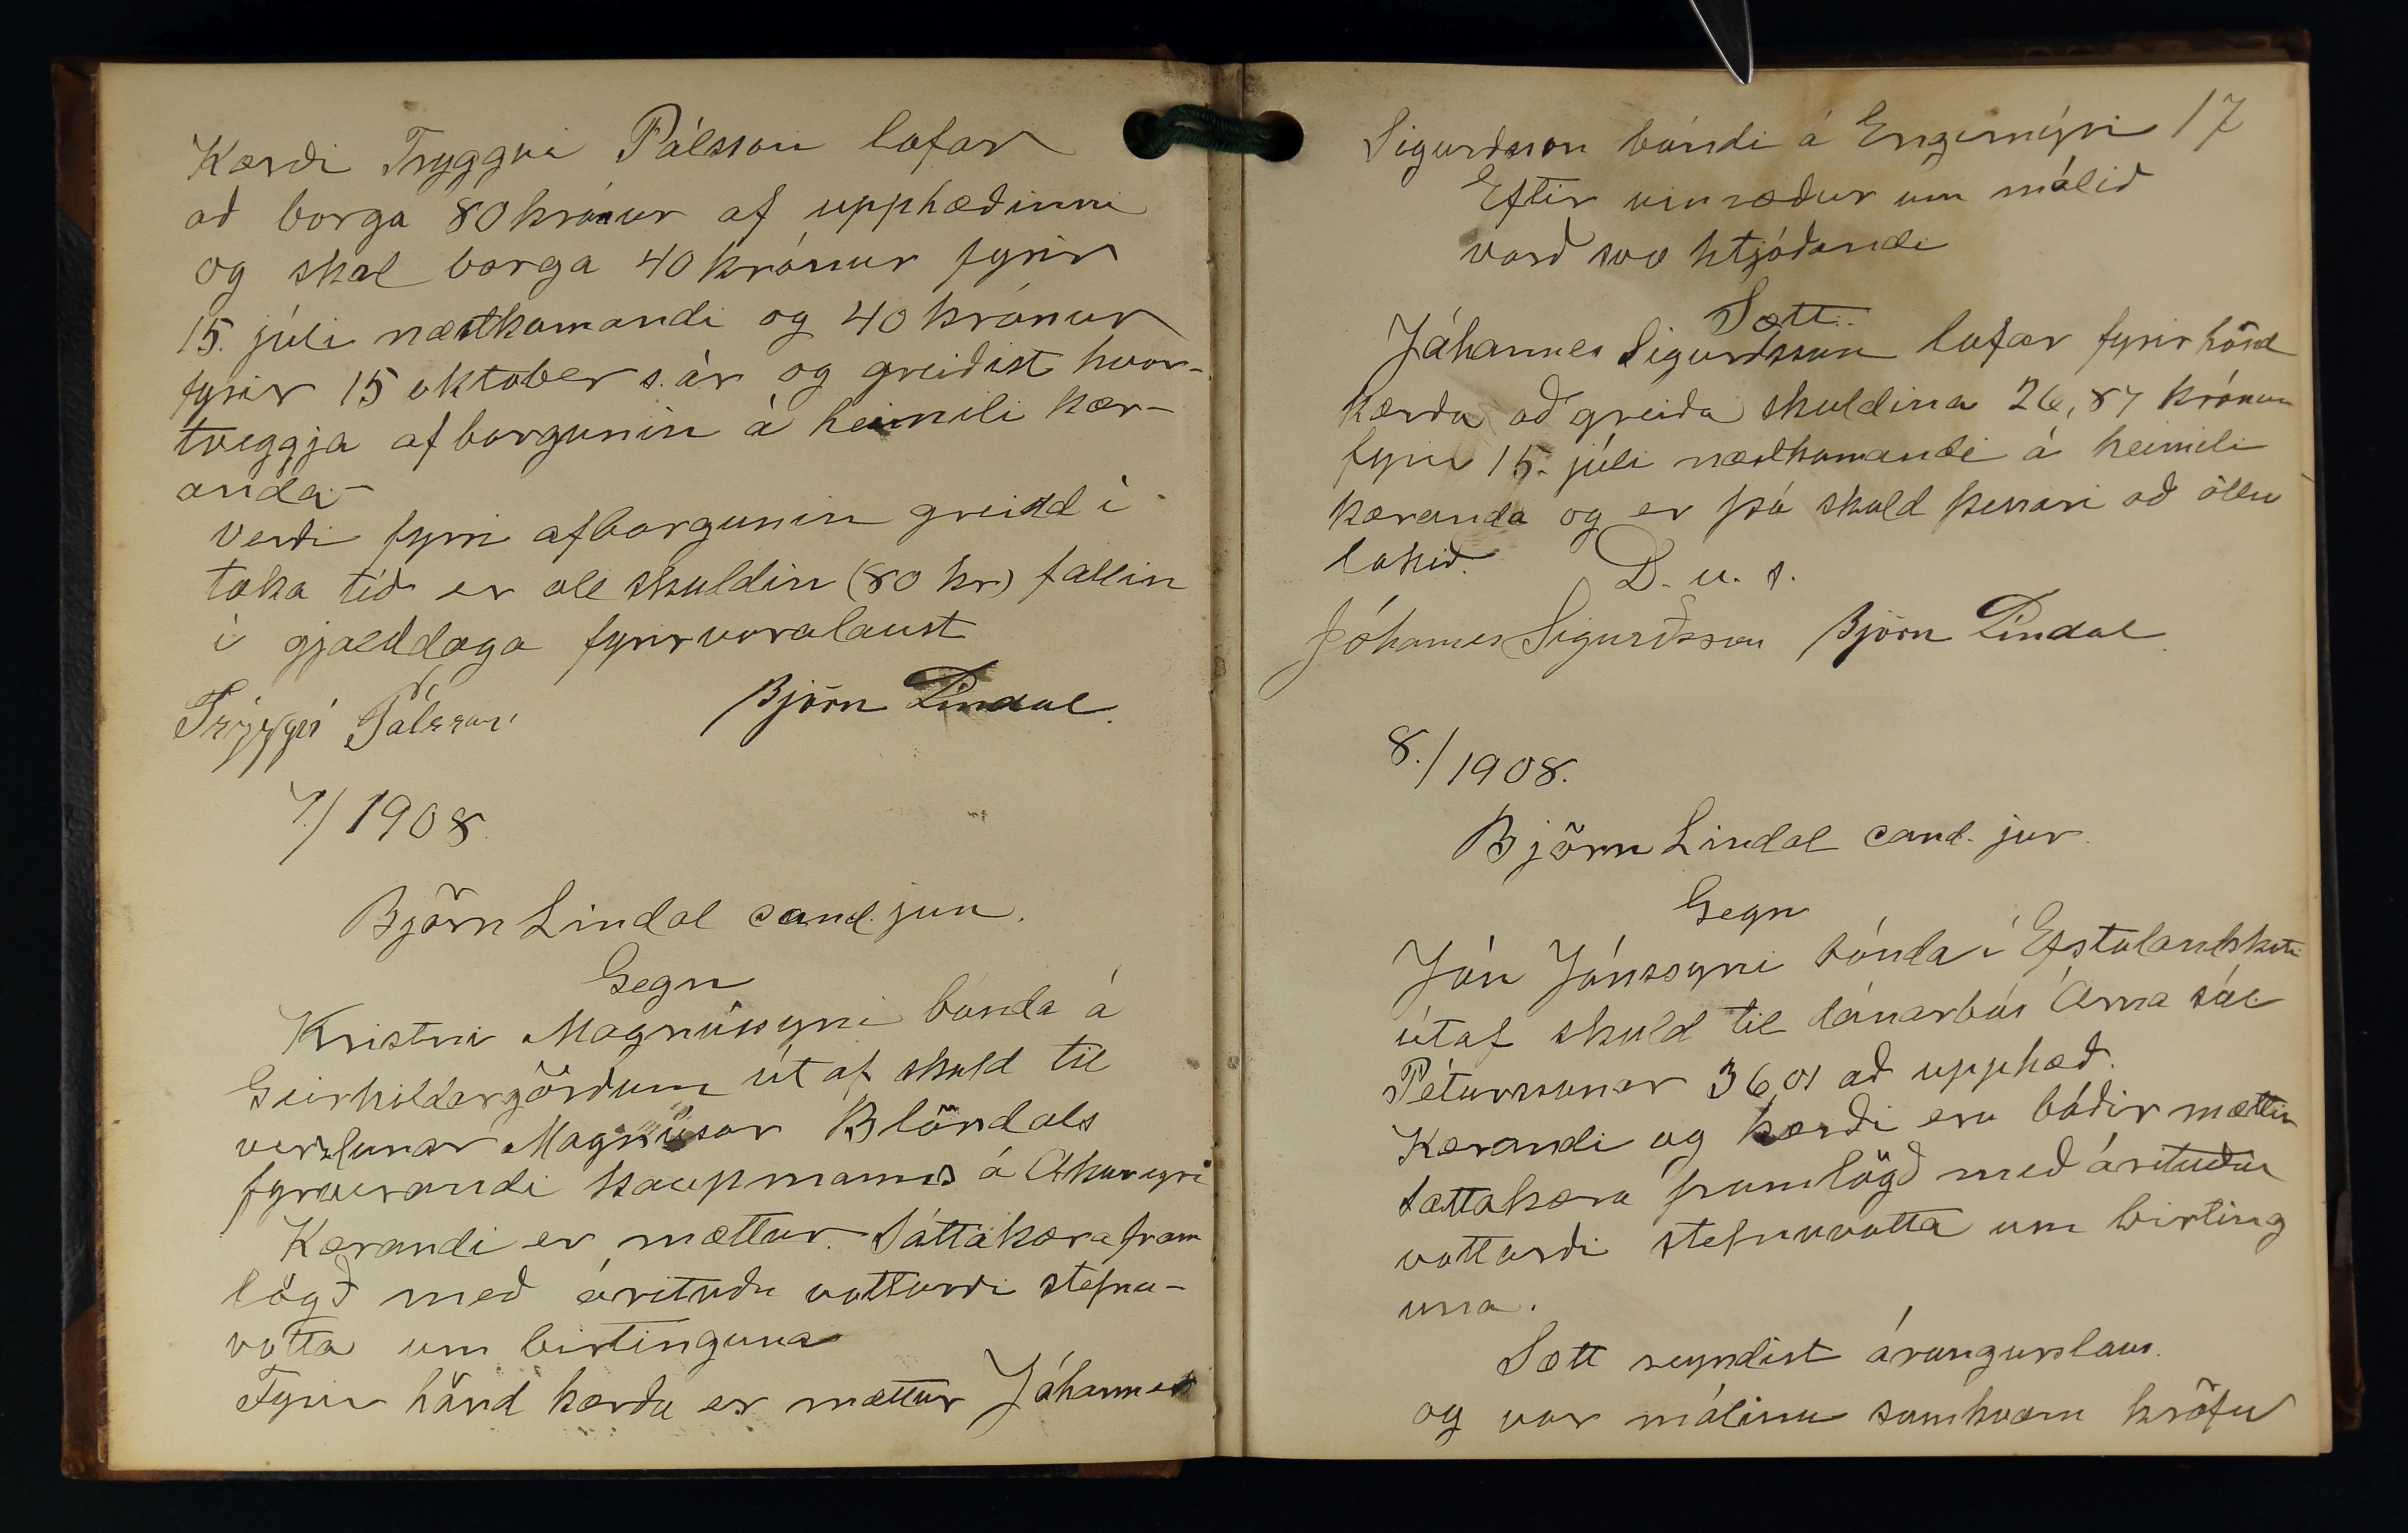 Kærði Tryggvi Pálsson lofar
að borga 80 krónur af upphæðinni
og skal borga 40 krónur fyrir
15. júli næstkomandi og 40 krónur
fyrir 15 oktober s. ár og greiðist hvor-
tveggja afborgunin á heimili kær-
anda.-
Verði fyrri afborgunin greidd í
taka tíð er öll skuldin (80 kr) fallin
í gjalddaga fyrirvaralaust
Tryggvi Pálsson Björn Líndal.
7./1908.
Björn Lindal cand. jur.
Gegn
Kristni Magnússyni bónda á
Geirhildargörðum út af skuld til
verzlunar Magnúsar Blöndals
fyrverandi kaupmanns á Akureyri
Kærandi er mættur. Sáttakæra fram
lögð með árituðu vottorði stefnu-
votta um birtinguna
Fyrir hönd kærða er mættur Jóhannes
17
Sigurðsson bóndi á Engimýri
Eftir umræður um málið
varð svo hljóðandi
Sætt:
Jóhannes Sigurðsson lofar fyrir hönd
kærða að greiða skuldina 26,87 krónur
fyrir 15. júli næstkomandi á heimili
kæranda og er þá skuld þessari að öllu
lokið.
D. u. s.
Jóhannes Sigurðsson Björn Líndal.
8./1908.
Björn Lindal cand. jur.
Gegn
Jón Jónssyni bónda í Efstalandskoti
útaf skuld til dánarbús Árna sál
Péturssonar 36,01 að upphæð.
Kærandi og kærði eru báðir mættir
Sáttakæra framlögð með árituðu
vottorði stefnuvotta um birting
una.
Sætt reyndist árangurslaus
og var málinu samkvæm kröfu